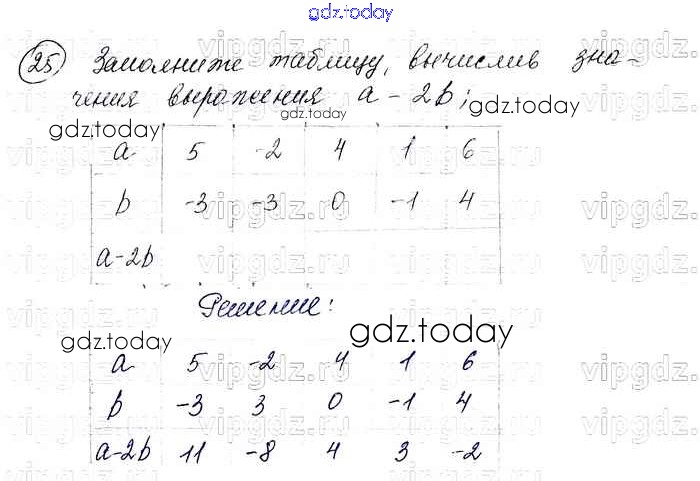 gdz.today
25 Заполните таблицу, вычислив зна-
чения выражения a - 2b;
gdz.today
gdz.today
gdz.today
a 5 -2 4 1 6
b -3 -3 0 -1 4
a-2b
Решение:
gdz.today
gdz.today
a 5 -2 4 1 6
b -3 3 0 -1 4
a-2b 11 -8 4 3 -2
vipgdz.ru